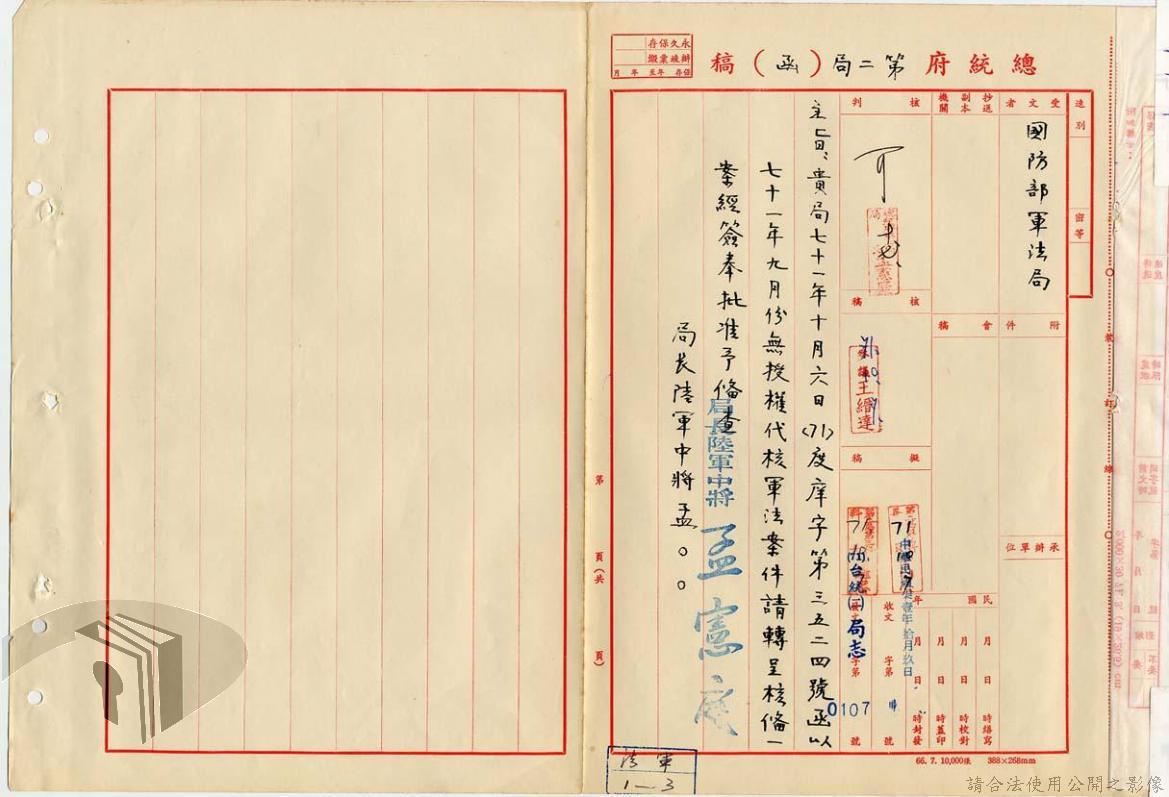 總統府第二局(函)稿
永久保存
辦竣彙繳
保存 年至 年 月
速別
密等
受文者
國防部軍法局
抄送
副本
機關
附件
會稿
承辦單位
核判
可
核稿
王縉達
擬稿
民國 年
月 日 時繕寫
月 日 時校對
月 日 時蓋印
月 日 時封發
中華民國柒拾壹年拾月玖日
收文 字第 號
發文 字第 號
71
台統(二)局志
0107
主旨、貴局七十一年十月六日(71)度庠字第三五二四號函以
七十一年九月份無授權代核軍法案件請轉呈核備一
案經簽奉批准予備查
局長陸軍中將孟○○
局長陸軍中將 孟憲庭
第 頁(共 頁)
裝
訂
線
66. 7. 10,000張 388×268mm
法軍
1—3
請合法使用公開之影像